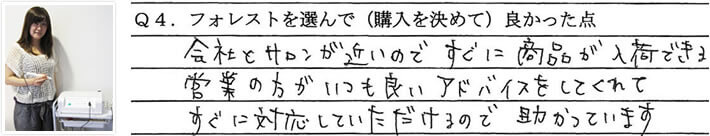 Q4．フォレストを選んで（購入を決めて）良かった点
会社とサロンが近いので すぐに 商品が 入荷できる
営業の方が いつも良い アドバイスをしてくれて
すぐに対応していただけるので 助かっています